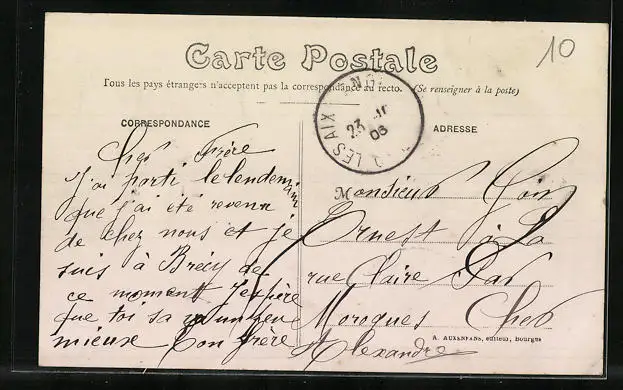 Carte Postale
10
Tous les pays étrangers n'acceptent pas la correspondance au recto. (Se renseigner à la poste)
CORRESPONDANCE
ADRESSE
LES AIX
23
06
Cher Frère
J'ai parti le lendemain
que j'ai été revenu
de chez nous et je
suis à Brécy de
ce moment J'espère
que toi sa va un peu
mieux Ton frère
Alexandre
Monsieur
Ernest à La
rue Claire Par
Moroques Cher
A. AUXENFANS, éditeur, Bourges